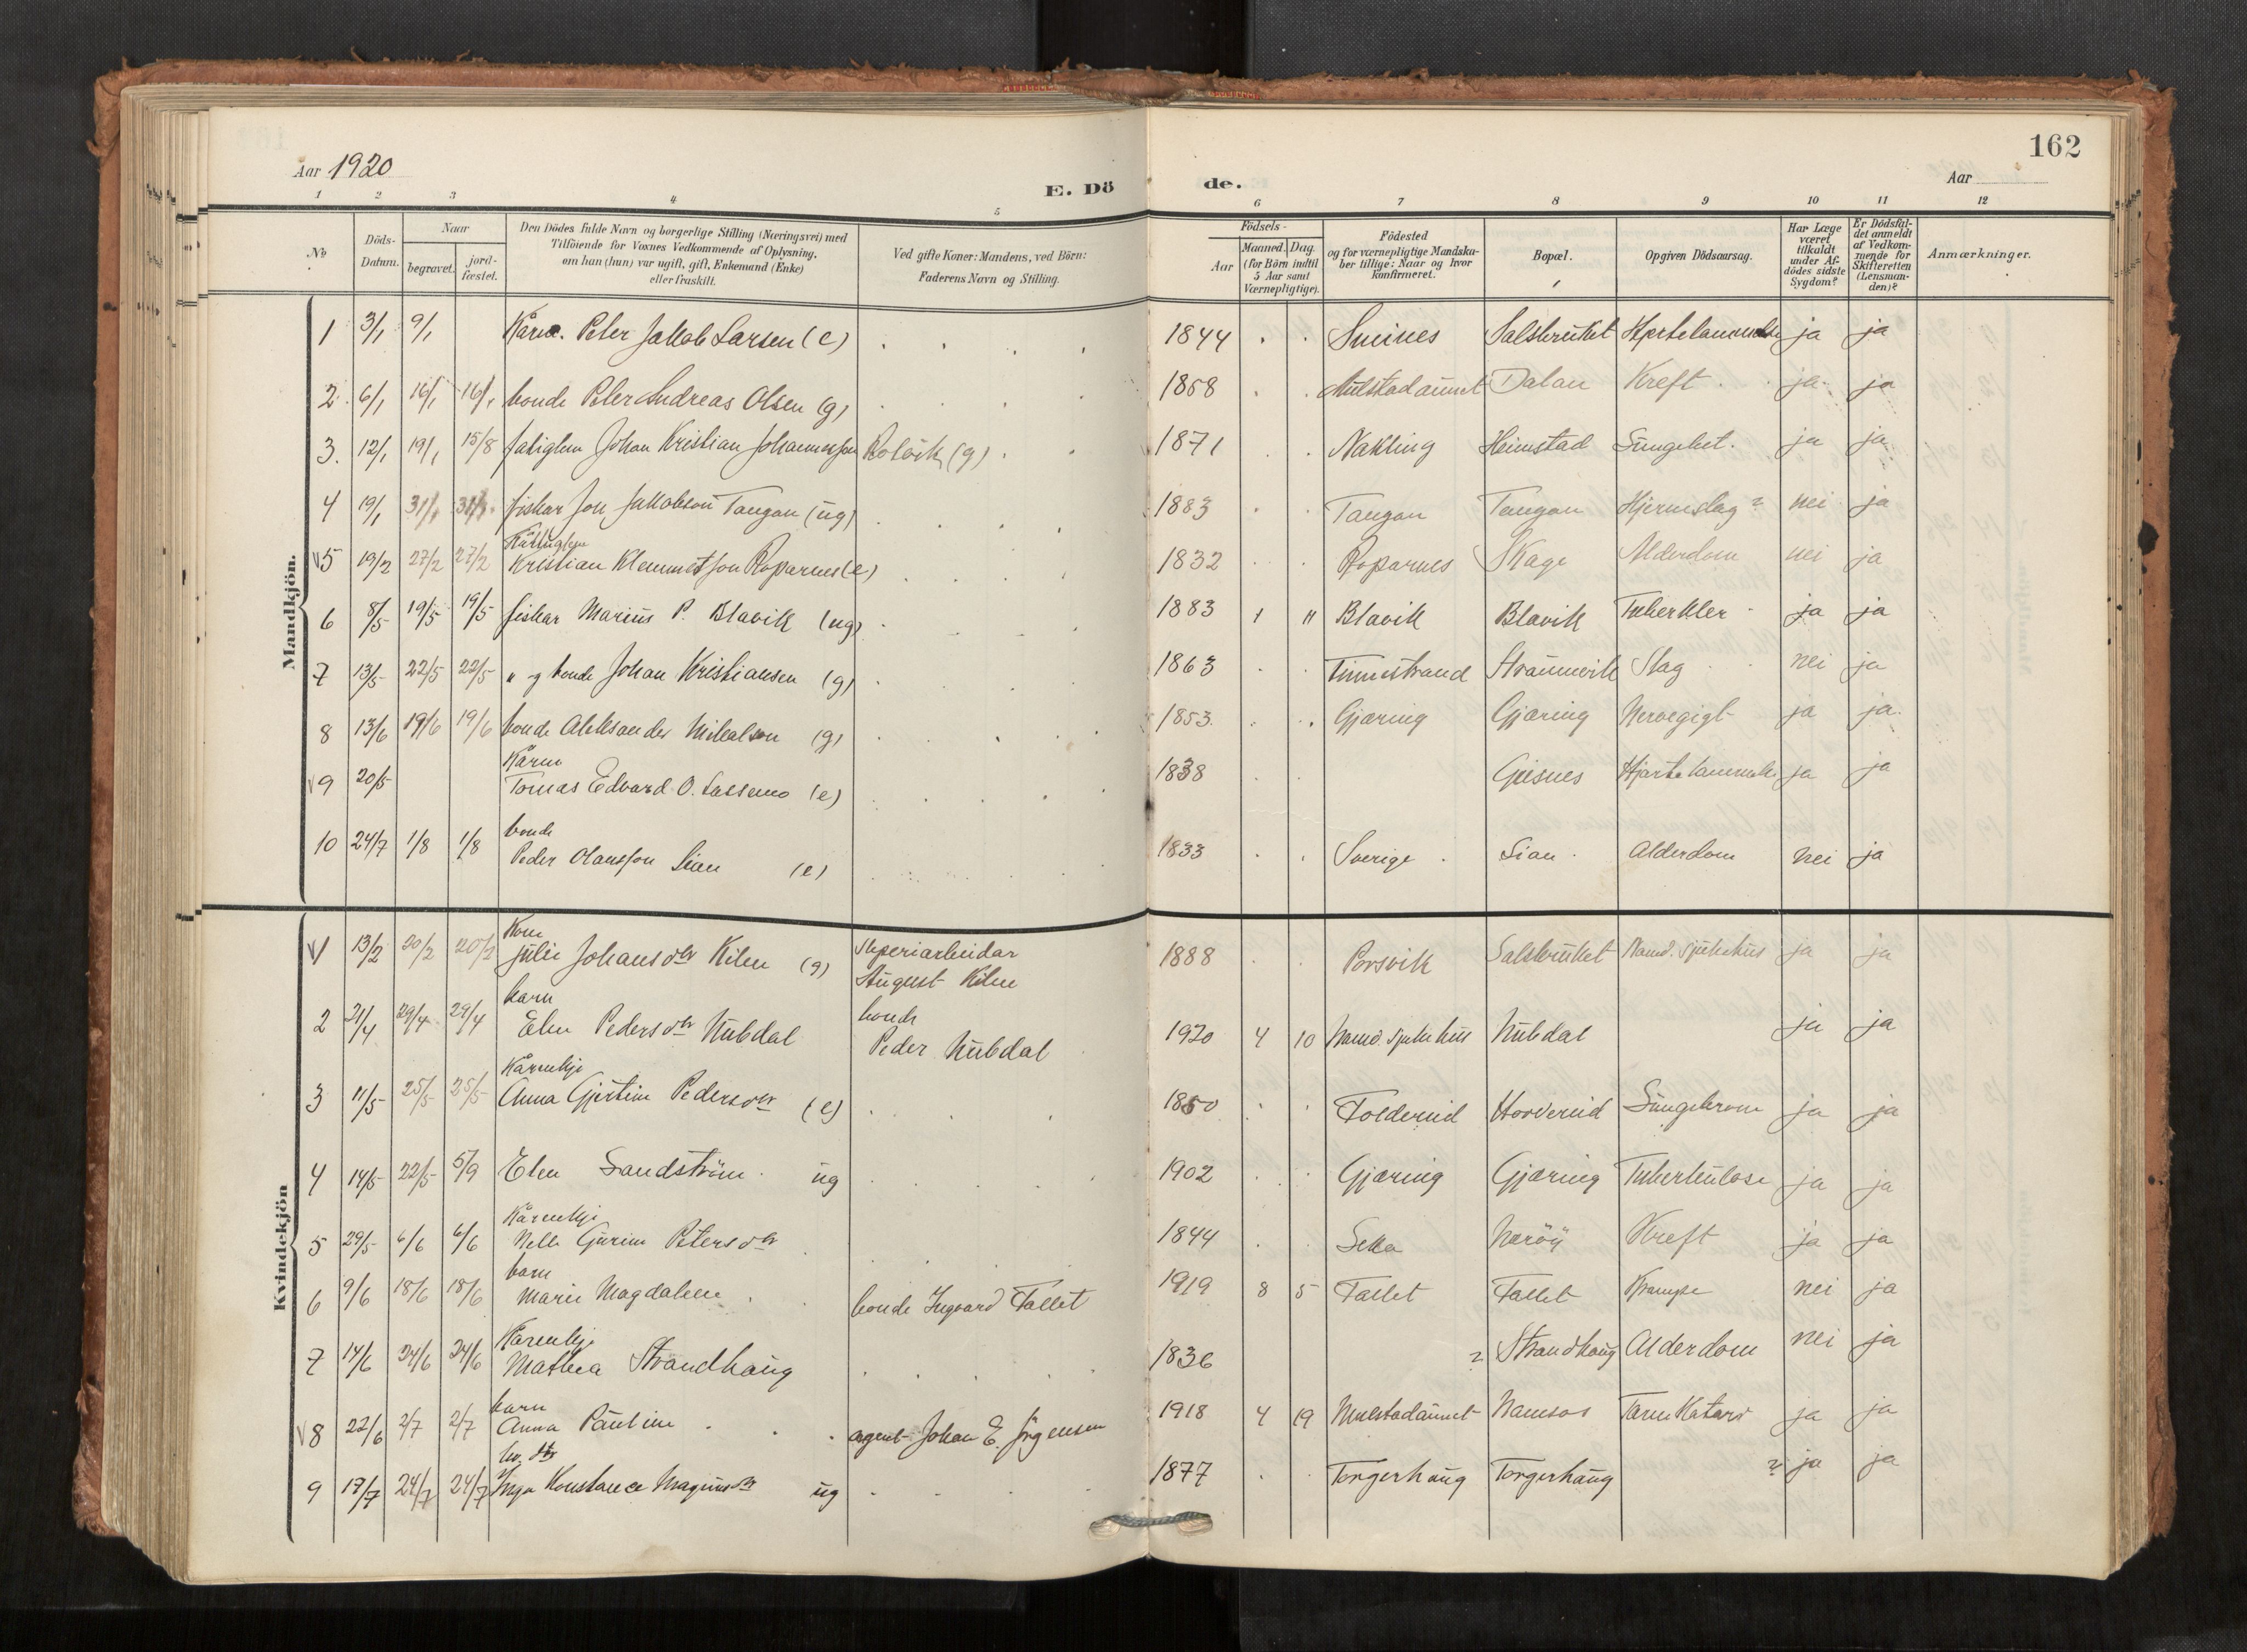 162
Aar 1920
E. Dö de.
Aar
1 2 3 4 5 6 7 8 9 10 11 12
№
Döds-Datum.
Naar
begravet.
jord-fæstet.
Den Dödes fulde Navn og borgerlige Stilling (Næringsvei) med
Tilföiende for Voxnes Vedkommende af Oplysning,
om han (hun) var ugift, gift, Enkemand (Enke)
eller fraskilt.
Ved gifte Koner: Mandens, ved Börn:
Faderens Navn og Stilling.
Födsels-
Aar
Maaned. Dag.
(for Börn indtil
5 Aar samt
Værnepligtige).
Födested
og for værnepligtige Mandska-
ber tillige: Naar og hvor
konfirmeret.
Bopæl.
Opgiven Dödsaarsag.
Har Læge
været
tilkaldt
under Af-
dödes sidste
Sygdom?
Er Dödsfal-
det anmeldt
af Vedkom-
mende for
Skifteretten
(Lensman-
den)?
Anmærkninger.
Mandkjön.
1 3/1 9/1 Kårm. Peter Jakob Larsen (e) 1844 Smines Salsbruket ja ja
2 6/1 16/1 16/1 bonde Peter Andreas Olsen (g) 1858 Dalan Kreft ja ja
3. 12/1 19/1 15/8 Johan Kristian Johannesson Rotvik (g) 1871 Nakling Heimstad ja ja
4 19/1 31/1 31/1 fiskar Jon Jakobson Tangan (ug) 1883 Tangan Tangan Hjerneslag? nei ja
5 19/2 27/2 27/2 Kristian Klemmetson Roparnes (e) 1832 Roparnes Skage Alderdom nei ja
6 8/5 19/5 19/5 fiskar Marius P. Blavik (ug) 1883 Blavik Blavik Tuberkler ja ja
7 13/5 22/5 22/5 " og bonde Johan Kristiansen (g) 1863 Finnestrand Straumvik Slag nei ja
8 13/6 19/6 19/6 bonde Aleksander Mikalsen (g) 1853 Gjæring Gjæring Nervegigt ja ja
Kårm
9 20/5 Tomas Edvard O. Sassemo (e) 1838 ja ja
bonde
10 24/7 1/8 1/8 Peder Olausson Sian (e) 1833 Sverige Sian Alderdom nei ja
Kvindekjön
Kone
1 13/2 20/2 20/2 Julie Johansdtr Kilen (g) August Kilen 1888 Porsvik Salsbruket Namd. Sjukehus ja ja
barn bonde
2 21/4 29/4 29/4 Elen Pedersdtr Nubdal Peder Nubdal 1920 4 10 Namd. Sjukehus Nubdal ja ja
Kårenkje
3 11/5 25/5 25/5 Anna Gjertine Pedersdtr (e) 1850 Foldereid Hovdereid ja ja
4 14/5 22/5 5/9 Elen Sandström ug 1902 Gjæring Gjæring Tuberkulose ja ja
Kårenkje
5 29/5 6/6 6/6 Petersdtr 1844 Leka Nærøy Kreft ja ja
barn
6 9/6 18/6 18/6 Marie Magdalene bonde Ingvard Fallet 1919 8 5 Fallet Fallet Krampe nei ja
Kårenkje
7 14/6 24/6 24/6 Mathea Strandhaug 1836 ? Strandhaug Alderdom nei ja
barn
8 22/6 2/7 2/7 Anna Pauline agent Johan E. Jörgensen 1918 4 19 Namsos Tarmkatarr ja ja
9 17/7 24/7 24/7 Inga Konstance Magnusdtr ug 1877 Torgerhaug Torgerhaug ? ja ja